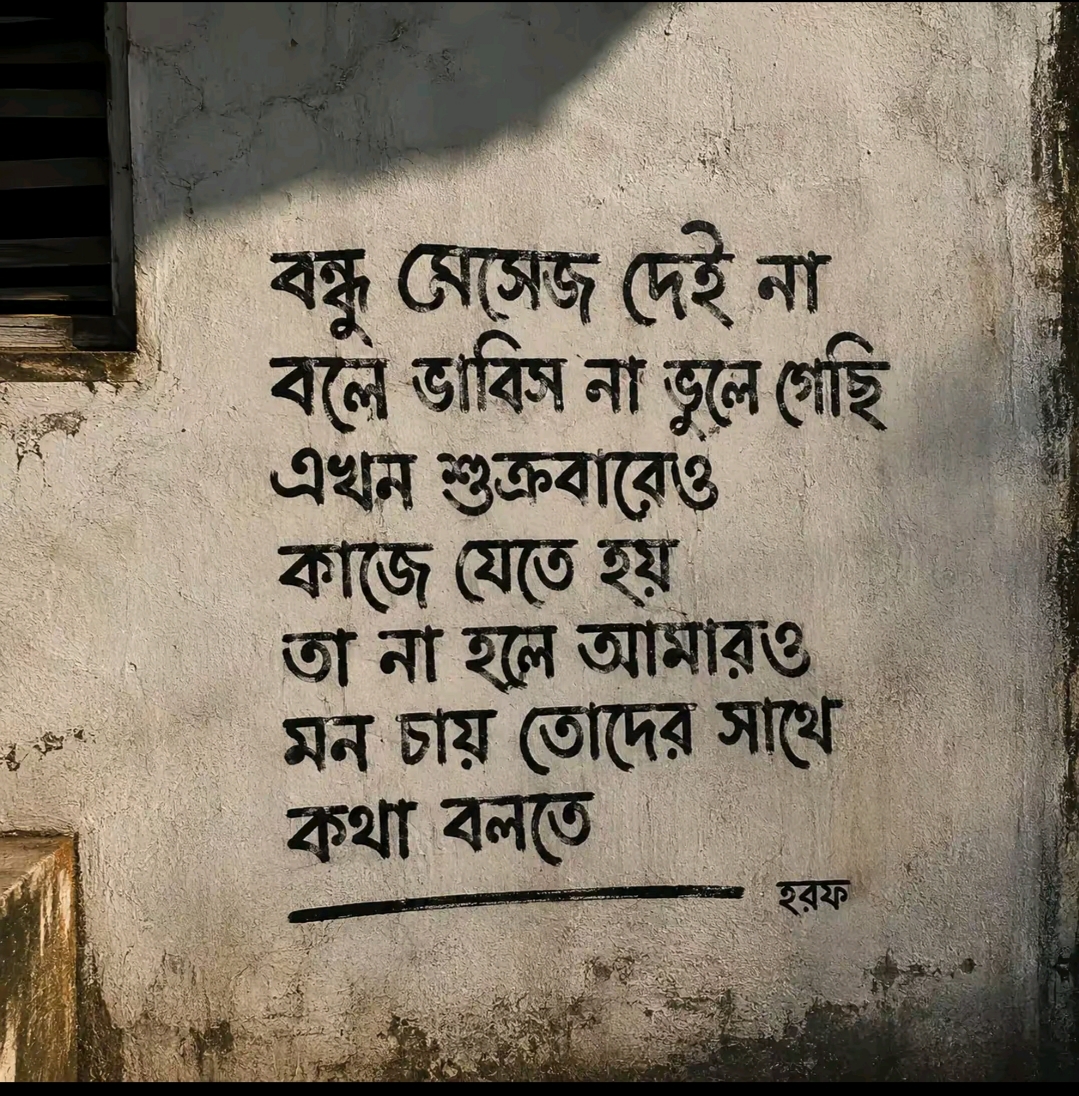 বন্ধু মেসেজ দেই না
বলে ভাবিস না ভুলে গেছি
এখন শুক্রবারেও
কাজে যেতে হয়
তা না হলে আমারও
মন চায় তোদের সাথে
কথা বলতে
হরফ